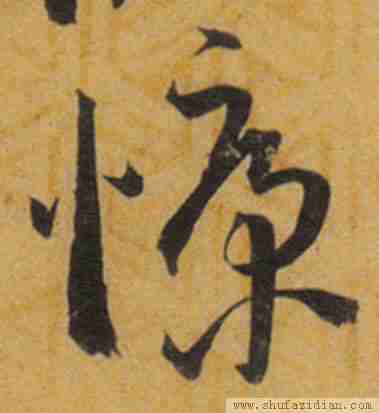 慷
www.shufazidian.com